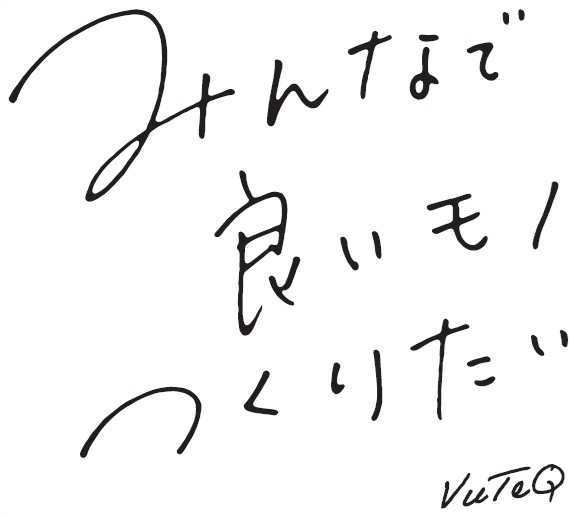 みんなで
良いモノ
つくりたい
VuTeQ